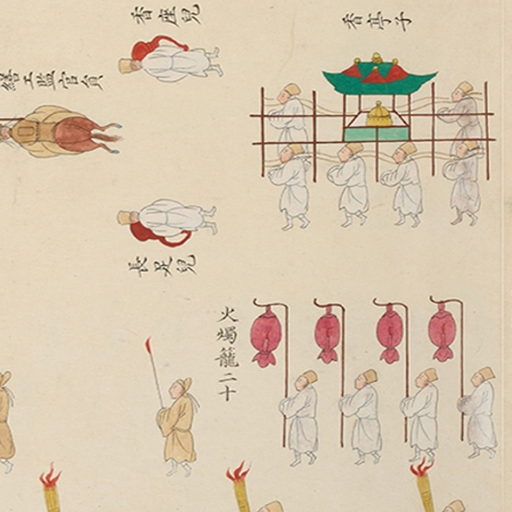 香亭子
香座兒
繕工監官員
長足兒
火燭籠二十